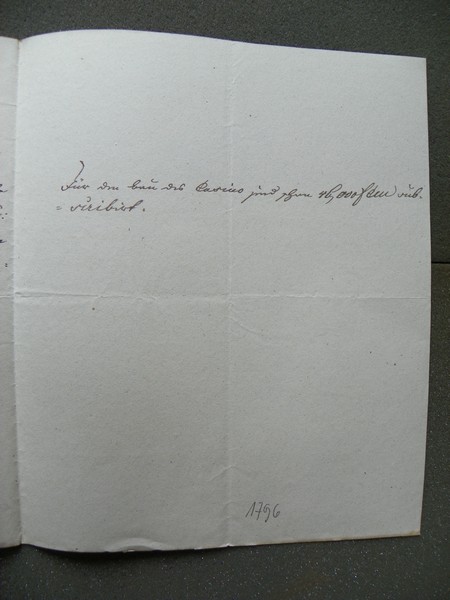 Für den bau des Casino sind schon 16,000 f CM sub-
= scribirt.
1796